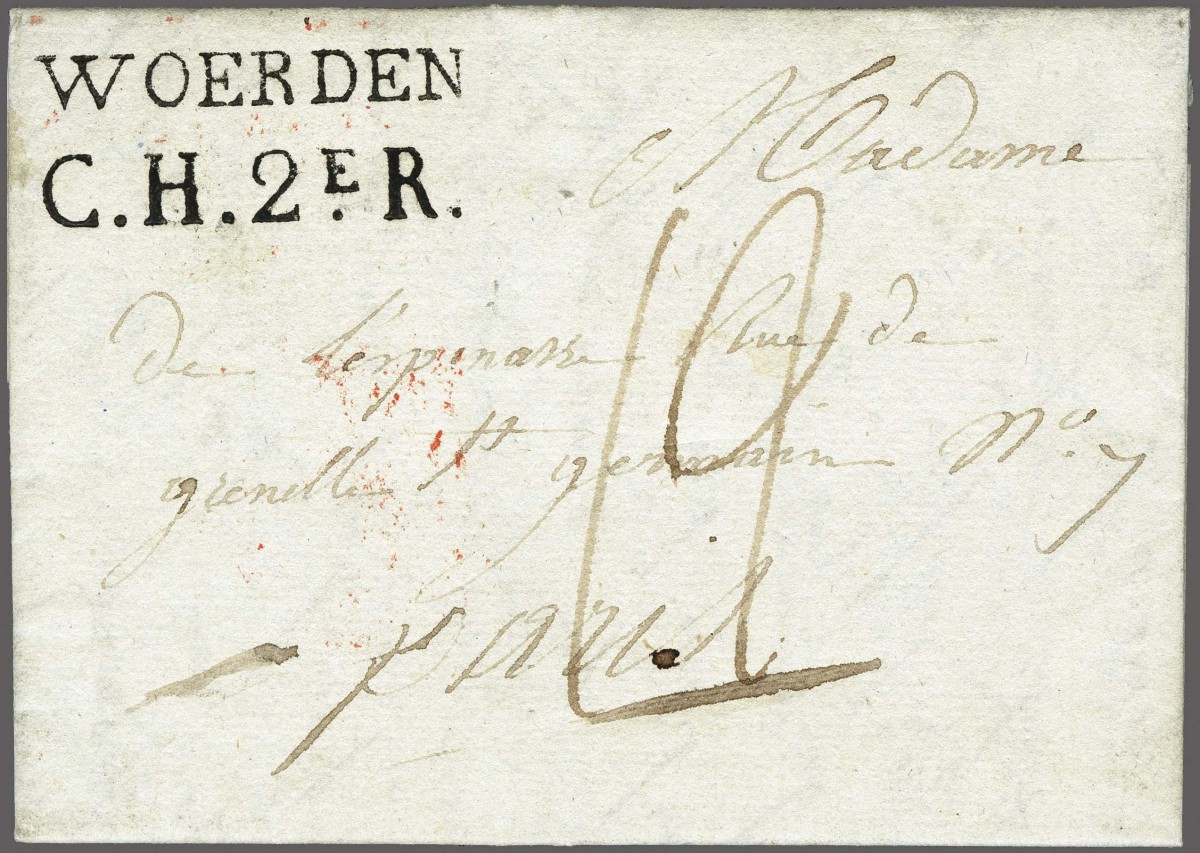 WOERDEN
C.H.2E.R.
A Madame
de Lespinasse Rue de
grenelle St germain No. 7
paris.